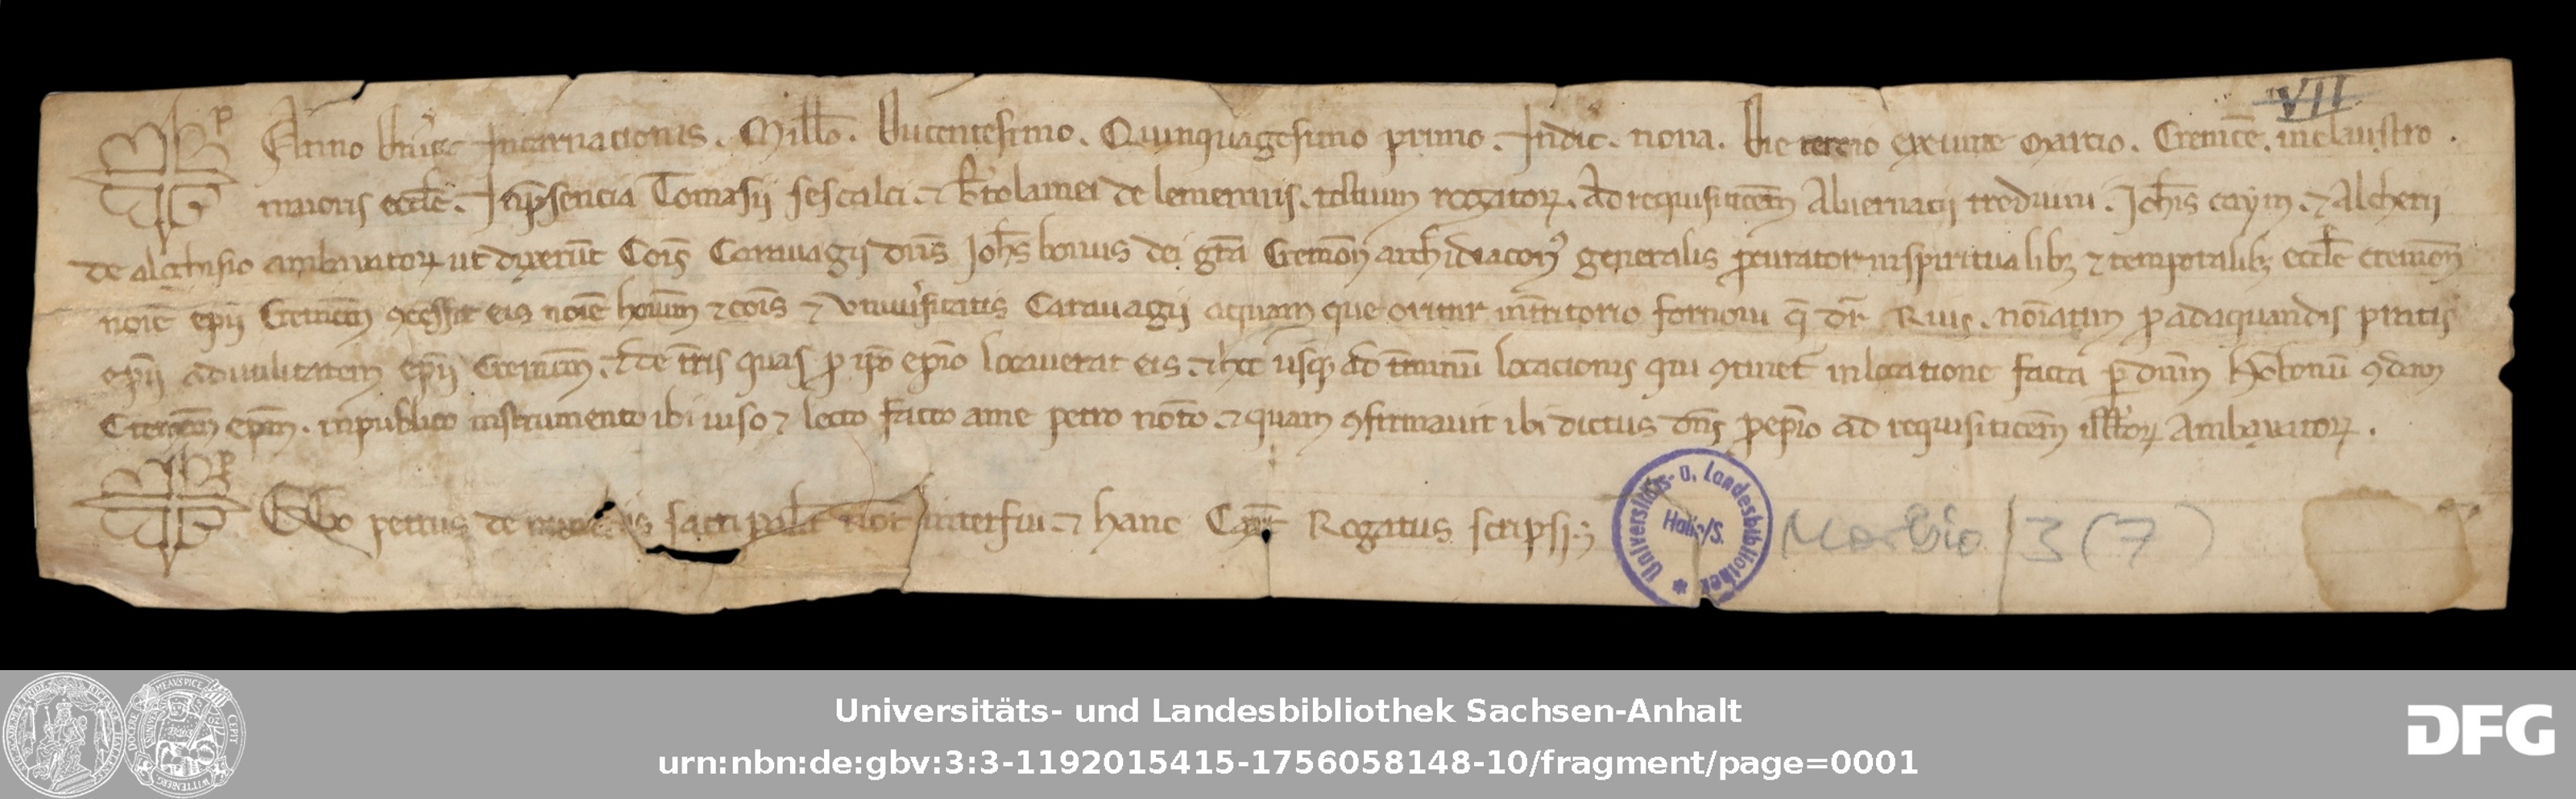 VII
Anno dnice Incarnacionis. Millo. Ducentesimo. Quinquagesimo primo. Indic. nona. Die tercio exeunte Marcio. Cremone. in claustro.
maioris eccle. In psencia Tomasii sescalci. & Btolamei de lemennis. testium rogator. Ad requisiticem Aluernacii Johis caym. & Alcherii
de ambaxator ut dixerut Cois Carauagii dns Johs bonus dei gra Cremon archidiacon generalis pcurator in spiritualib & temporalib eccle cremon
noie epii Cremon concessit eis noie hoium & cois & Vniuersitatis Carauagii aquam que oritur in territorio fornoui q dr Riuis. noiatim p adaquandis pratis
epii ad utilitatem epii cremon. & de tris quas p ipo epio locauerat eis. & hec usq ad tminu locacionis qui continet in locatione facta p dnm Hobonu condam
Cremon epm. in publico instrumento ibi uiso & lecto facto a me petro noto. & quam confirmauit ibi dictus dns p epio ad requisiticem illor Ambaxator.
EGo petrus de sacri palat not interfui. & hanc Cart Rogatus scripsi
Universitäts- u. Landesbibliothek
Halle/S.
Morbio 3 (7)
Universitäts- und Landesbibliothek Sachsen-Anhalt
urn:nbn:de:gbv:3:3-1192015415-1756058148-10/fragment/page=0001
DFG